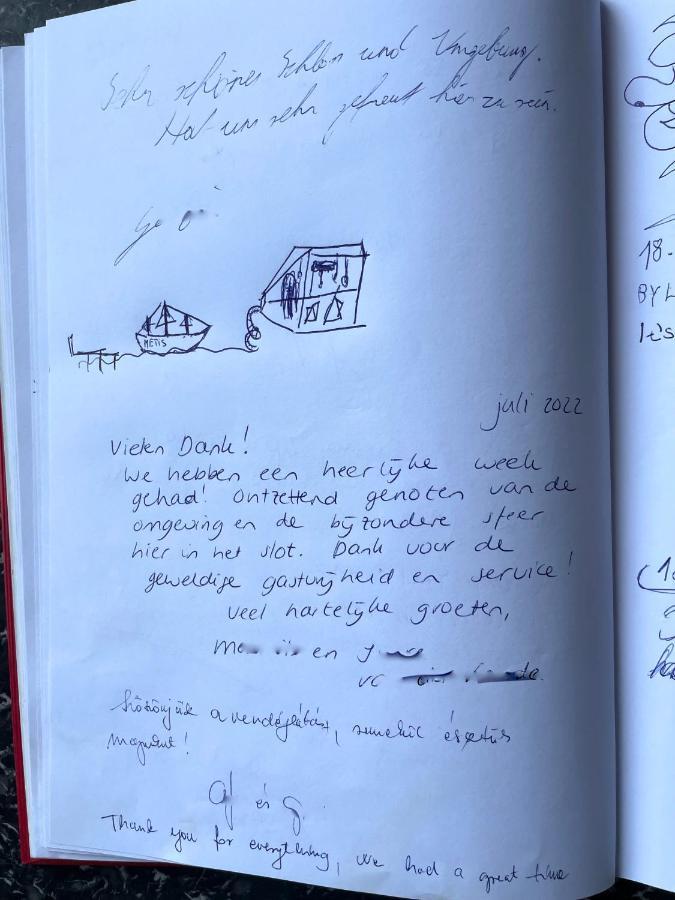 Sehr schönes Schloss und Umgebung.
Hat uns sehr gefreut hier zu sein.
METIS
juli 2022
Vielen Dank!
We hebben een heerlijke week
gehad! Ontzettend genoten van de
omgeving en de bijzondere sfeer
hier in het slot. Dank voor de
geweldige gastvrijheid en service!
Veel hartelijke groeten,
en
Köszönjük a vendéglátást,
magunkat!
és
Thank you for everything, we had a great time
18.
BY
It's